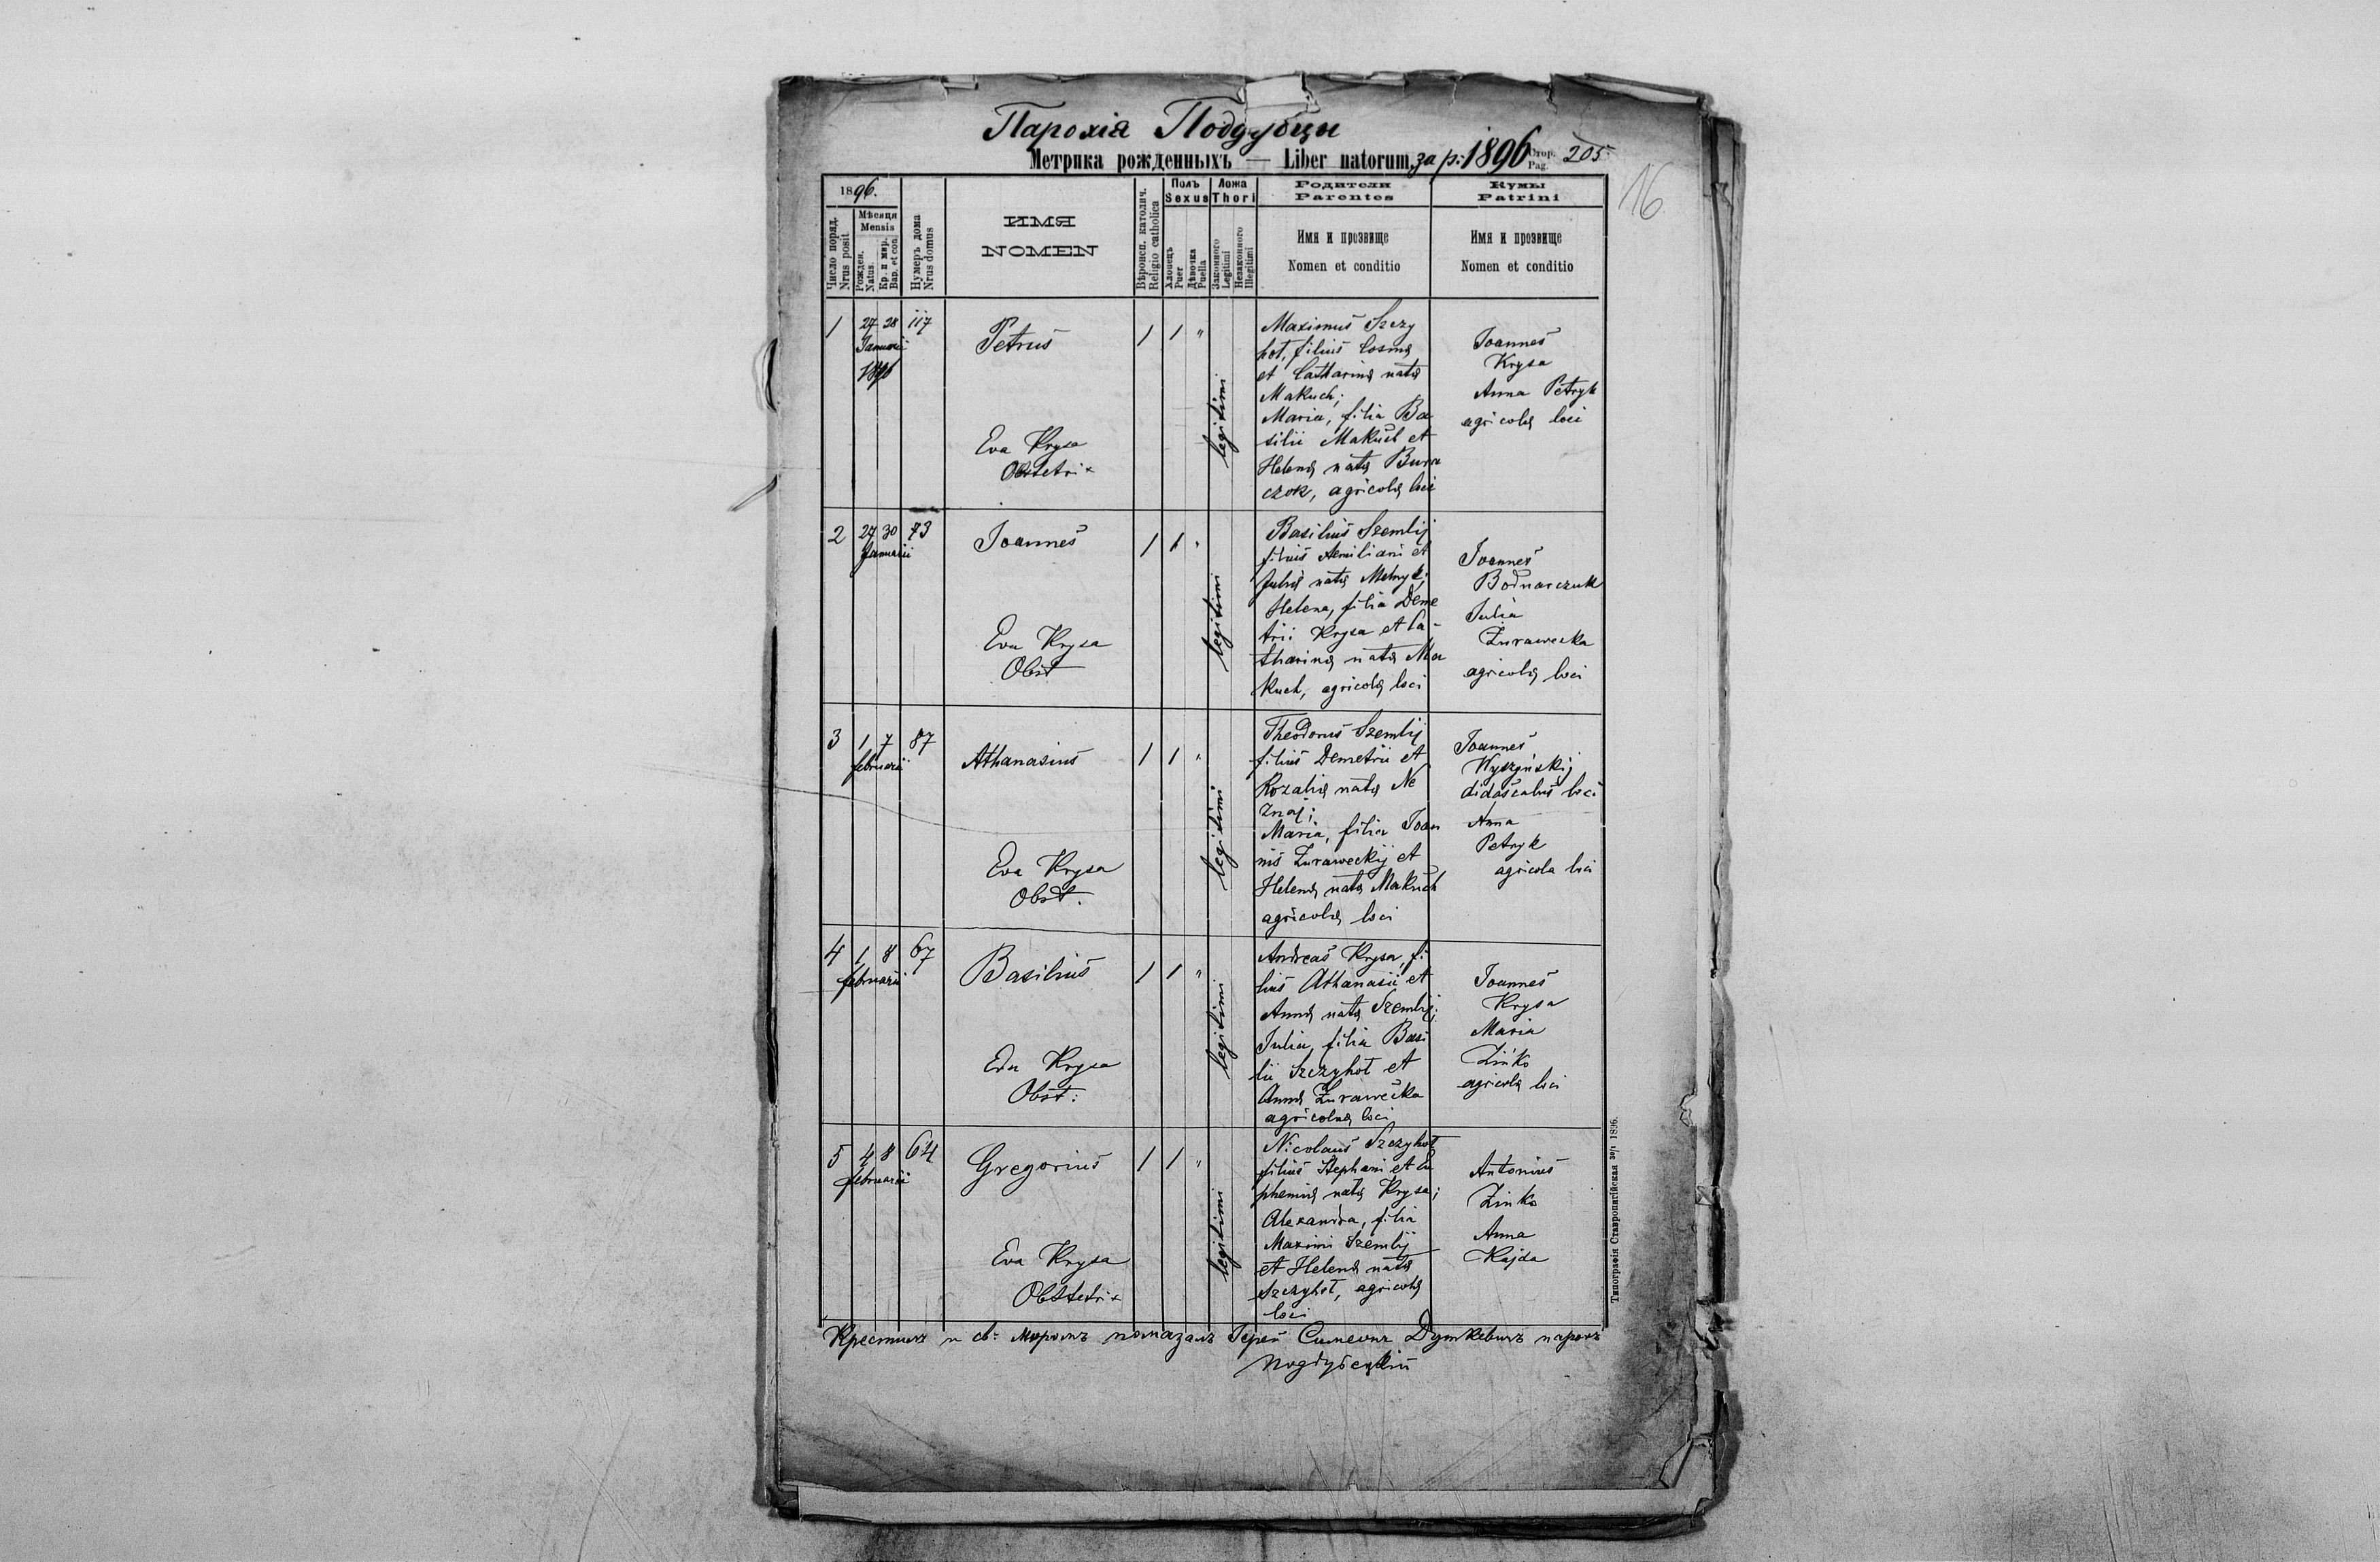 Парохія Поддубцы
Метрика рожденныхъ — Liber natorum, за р: 1896 Стор. Pag. 205
16
1896.
Число поряд. Nrus posit.
Мѣсяця Mensis
Рожден. Natus.
Кр. и мир. Bap. et con.
Нумеръ дома Nrus domus
ИМЯ
NOMEN
Вѣроисп. католич. Religio catholica
Полъ Sexus
Хлопецъ Puer
Дѣвочка Puella
Ложа Thori
Законного Legitimi
Незаконного Illegitimi
Родители
Parentes
Имя и прозвище
Nomen et conditio
Кумы
Patrini
Имя и прозвище
Nomen et conditio
1 27 28 Januarii 1896 117
Petrus
Eva Krysa
Obstetrix
1 1 "
legitimi
Maximus Szczy
hot, filius Cosmę
et Catharinę natę
Makuch;
Maria, filia Ba
silii Makuch et
Helenę natę Bura
czok, agricolę loci
Joannes
Krysa
Anna Petryk
agricolę loci
2 27 30 Januarii 73
Joannes
Eva Krysa
Obst
1 1 "
legitimi
Basilius Szemlij
filius Aemiliani et
Julię natę Melnyk;
Helena, filia Deme
trii Krysa et Ca-
tharinę natę Ma
kuch, agricolę loci
Joannes
Bodnarczuk
Julia
Zurawecka
agricolę loci
3 1 7 februarii 87
Athanasius
Eva Krysa
Obst.
1 1 "
legitimi
Theodorus Szemlij
filius Demetrii et
Rozalię natę Ne
znaj;
Maria, filia Joan
nis Zuraweckij et
Helenę natę Makuch
agricolę loci
Joannes
Wyszyńskij
didascalus loci
Anna
Petryk
agricola loci
4 1 8 februarii 67
Basilius
Eva Krysa
Obst:
1 1 "
legitimi
Andreas Krysa, fi
lius Athanasii et
Annę natę Szemlij;
Julia, filia Basi
lii Szczyhot et
Annę Zurawecka
agricolę loci
Joannes
Krysa
Maria
Zińko
agricolę loci
5 4 8 februarii 64
Gregorius
Eva Krysa
Obstetrix
1 1 "
legitimi
Nicolaus Szczyhot
filius Stephani et Eu
phemię natę Krysa;
Alexandra, filia
Maximi Szemlij
et Helenę natę
Szczyhot, agricolę
loci
Antonius
Zinko
Anna
Kajda
Крестилъ и св: Муромъ помазалъ Іерей Симеонъ Дуткевичъ парохъ
поддубецкій
Типографія Ставропигійская 1896.